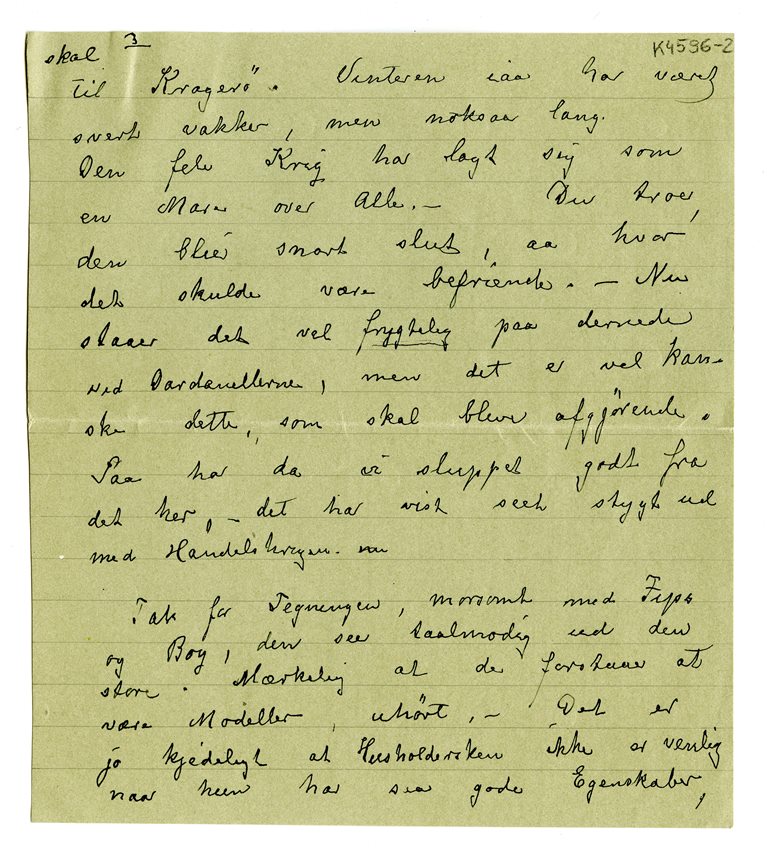 K4596-2
3
skal
til Kragerö. Vinteren iaa har været
svert vakker, men noksaa lang.
Den fele Krig har lagt sig som
en Mare over Alle. — Du troer,
den blier snart slut, aa hvor
det skulde være befriende. — Nu
staaer det vel frygtelig paa dernede
ved Dardanellerne, men det er vel kan-
ske dette, som skal blive afgjørende.
Saa har da vi sluppet godt fra
det her, — det har vist seet stygt ud
med Handelskrigen. nu
Tak for Tegningen, morsomt med Fips
og Boy, den see taalmodig ud den
store. Mærkelig at de forstaae at
være Modeller, uhört, — Det er
jo kjedeligt at Husholdersken ikke er venlig
naar hun har saa gode Egenskaber,